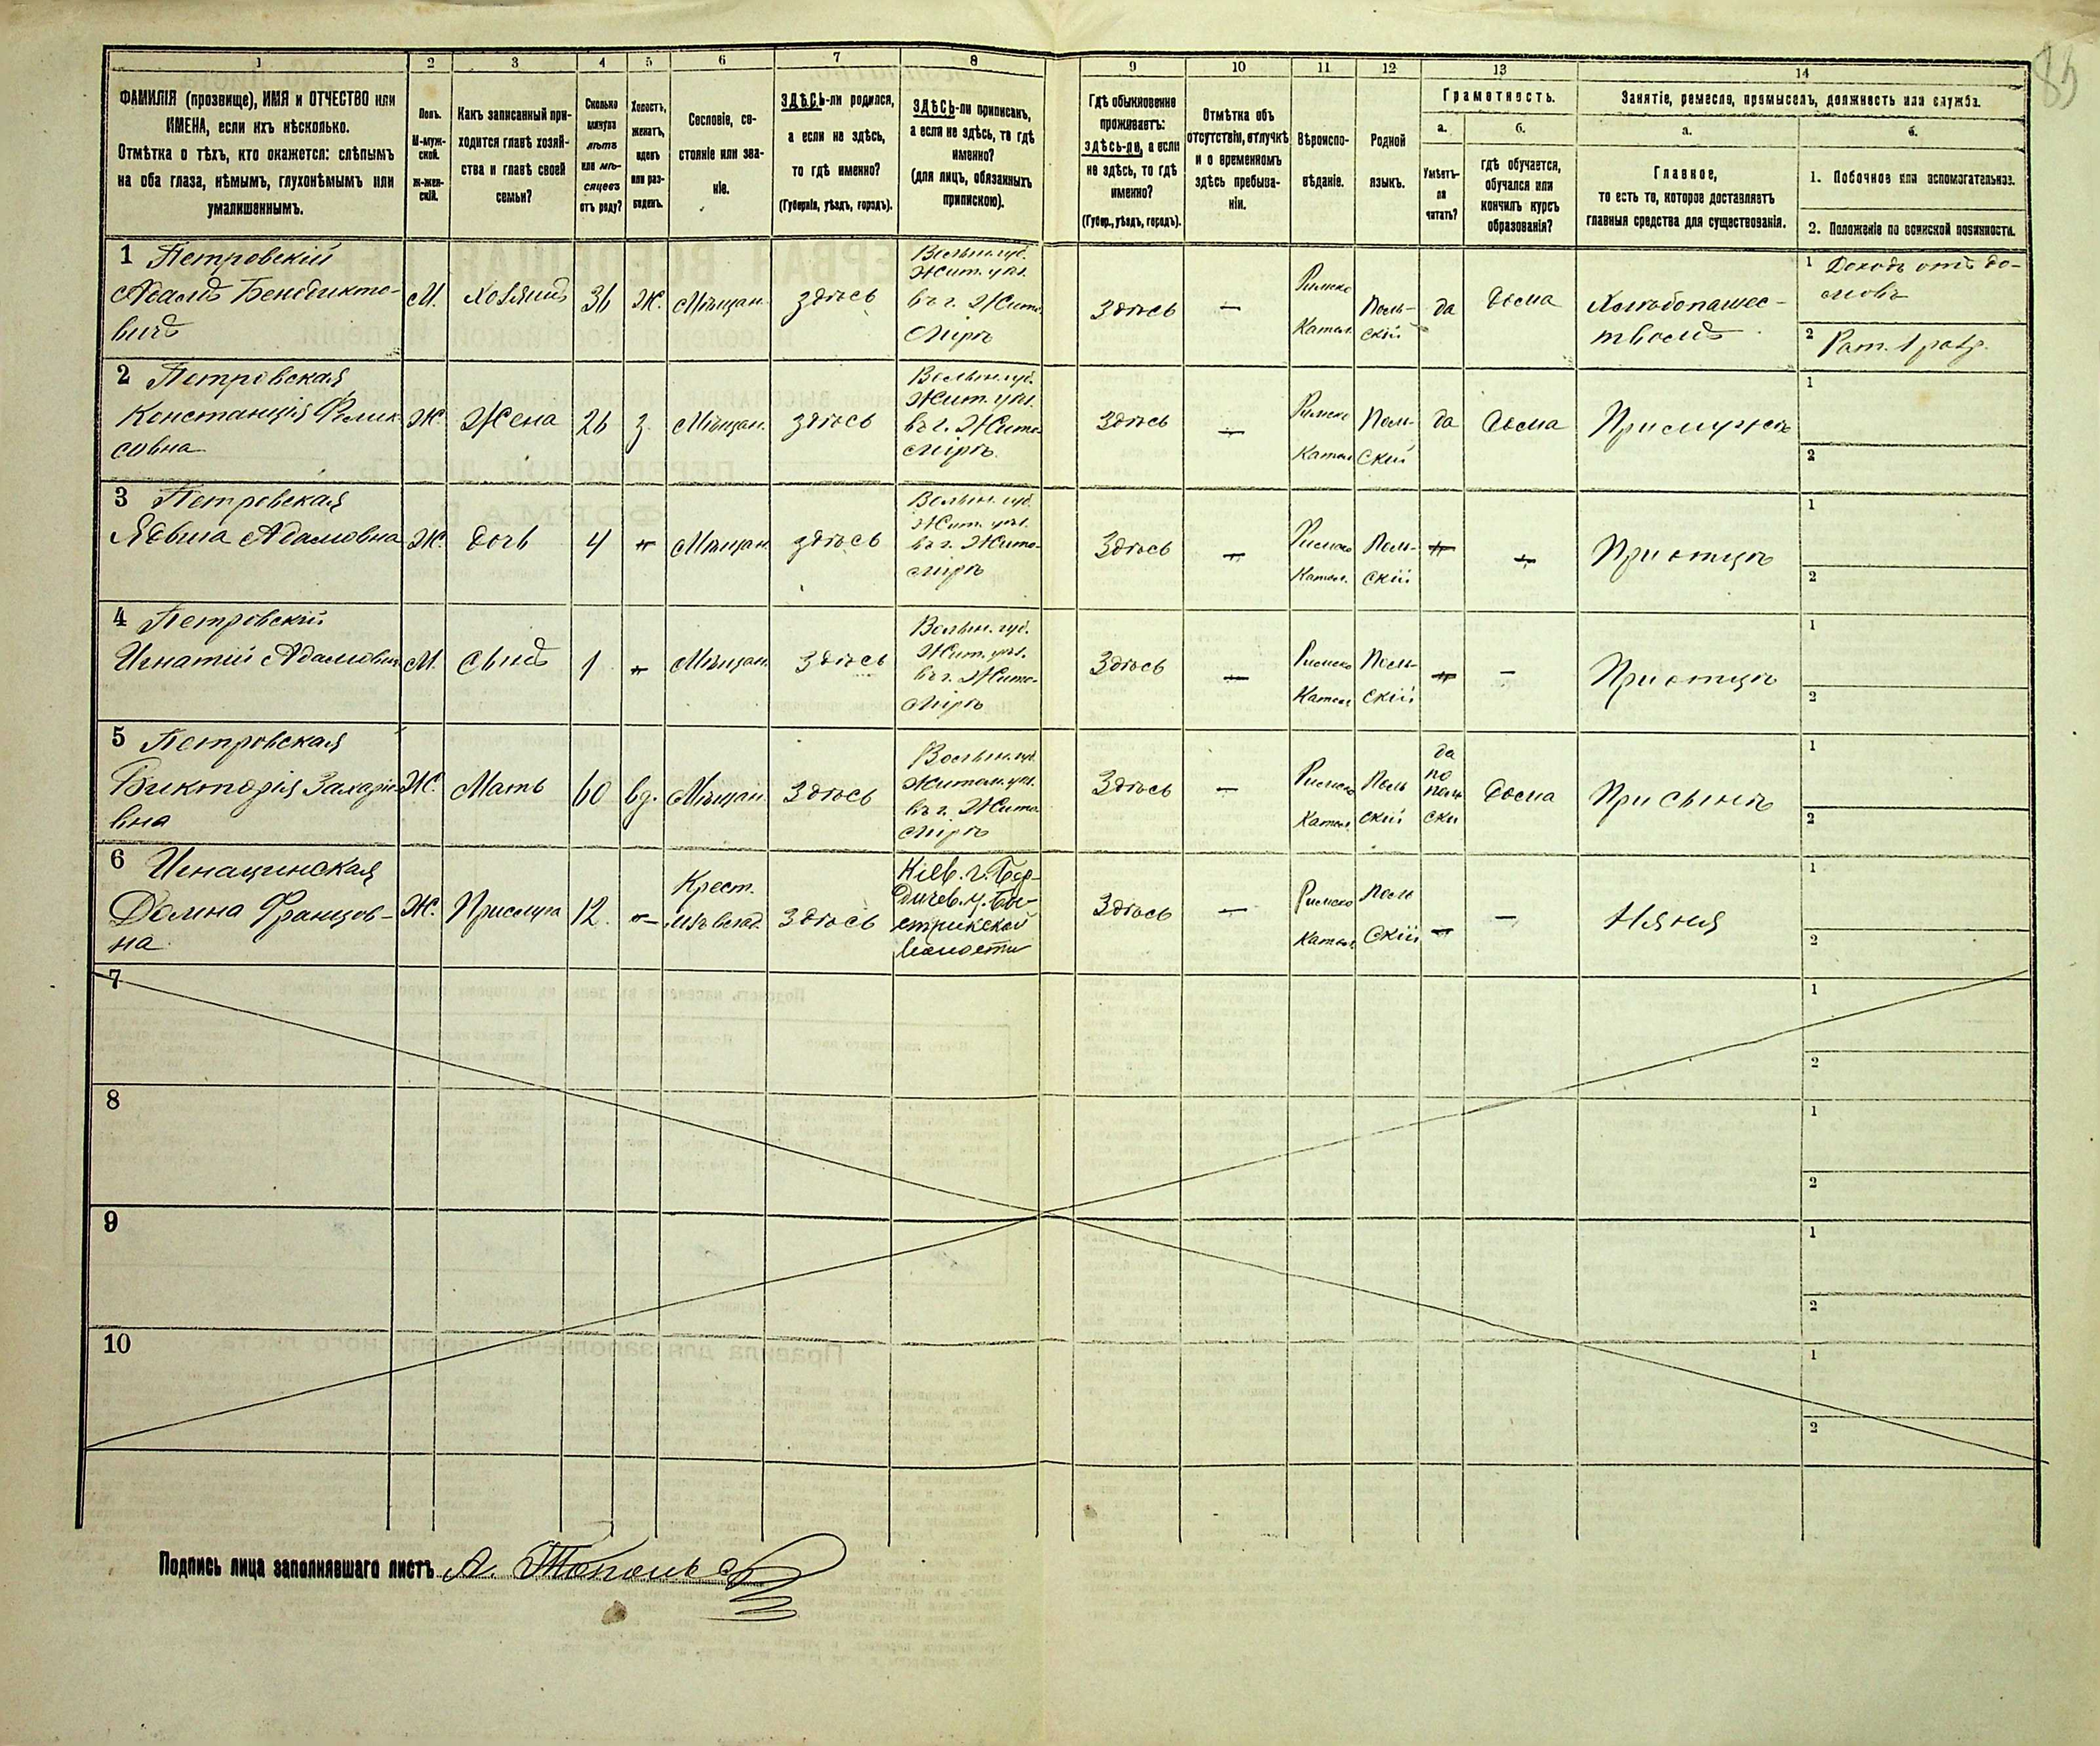 85
1 2 3 4 5 6 7 8 9 10 11 12 13 14
ФАМИЛІЯ (прозвище), ИМЯ и ОТЧЕСТВО или
ИМЕНА, если ихъ нѣсколько.
Отмѣтка о тѣхъ, кто окажется: слѣпымъ
на оба глаза, нѣмымъ, глухонѣмымъ или
умалишеннымъ.
Полъ.
М-муж-
ской.
Ж-жен-
скій.
Какъ записанный при-
ходится главѣ хозяй-
ства и главѣ своей
семьи?
Сколько
минуло
лѣтъ
или мѣ-
сяцевъ
отъ роду?
Холостъ,
женатъ,
вдовъ
или раз-
веденъ.
Сословіе, со-
стояніе или зва-
ніе.
ЗДѢСЬ-ли родился,
а если не здѣсь,
то гдѣ именно?
(Губернія, уѣздъ, городъ).
ЗДѢСЬ-ли приписанъ,
а если не здѣсь, то гдѣ
именно?
(для лицъ, обязанныхъ
припискою).
Гдѣ обыкновенно
проживаетъ:
здѣсь-ли, а если
не здѣсь, то гдѣ
именно?
(Губер., уѣздъ, городъ).
Отмѣтка объ
отсутствіи, отлучкѣ
и о временномъ
здѣсь пребыва-
ніи.
Вѣроиспо-
вѣданіе.
Родной
языкъ.
Грамотность.
а.
Умѣетъ-
ли
читать?
б.
гдѣ обучается,
обучался или
кончилъ курсъ
образованія?
Занятіе, ремесло, промыселъ, должность или служба.
а.
Главное,
то есть то, которое доставляетъ
главныя средства для существованія.
б.
1. Побочное или вспомогательное.
2. Положеніе по воинской повинности.
1 Петровскій
Адамъ Бенедикто-
вичъ
М.
Хозяинъ
36
Ж.
Мѣщан.
здѣсь
Волын. губ.
Жит. уѣз.
въ г. Жито-
мірѣ
Здѣсь
—
Римско
Катол.
Поль-
скій
да
дома
Хлѣбопашес-
твомъ
1 Доходъ отъ до-
мовъ
2 Рат. 1 разр.
2 Петровская
Констанція Фелик-
совна
Ж.
Жена
26
з.
Мѣщан.
здѣсь
Волын. губ.
Жит. уѣз.
въ г. Жито-
мірѣ.
Здѣсь
—
Римско
Катол
Поль-
скій
да
дома
При мужѣ
1
2
3 Петровская
Ядвига Адамовна
Ж.
дочь
4
Мѣщан.
здѣсь
Волын. губ.
Жит. уѣз.
въ г. Жито-
мірѣ
Здѣсь
—
Римско
Катол.
Поль-
скій
—
—
При отцѣ
1
2
4 Петровскій
Игнатій Адамович
М.
сынъ
1
Мѣщан.
Здѣсь
Волын. губ.
Жит. уѣз.
въ г. Жито-
мірѣ
Здѣсь
—
Римско
Катол
Поль-
скій
—
—
При отцѣ
1
2
5 Петровская
Викторія Захаріе-
вна
Ж.
Мать
60
вд.
Мѣщан.
Здѣсь
Волын. губ.
Житом. уѣз.
въ г. Жито-
мірѣ
Здѣсь
—
Римско
Катол.
Поль
скій
да
по
поль
ски
дома
При сынѣ
1
2
6 Игнацинская
Домина Францов-
на
Ж.
Прислуга
12.
—
Крест.
Здѣсь
Кіев. г. Бер-
дичев. у. Бы-
стрикской
волости
Здѣсь
—
Римско
Катол
Поль
скій
—
—
Няня
1
2
7
1
2
8
1
2
9
1
2
10
1
2
Подпись лица заполнявшаго листъ А.